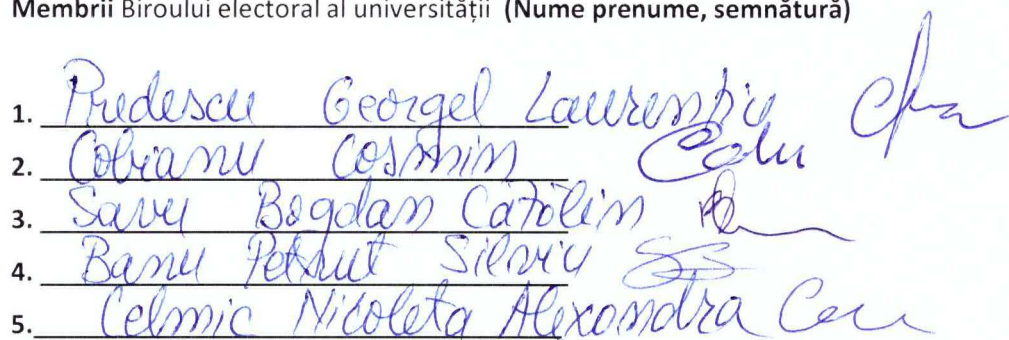 Membrii Biroului electoral al universității (Nume prenume, semnătură)
1. Predescu Georgel Laurențiu
2. Cobianu Cosmin
3. Savu Bogdan Cătălin
4. Banu Petruț Silviu
5. Celmic Nicoleta Alexandra